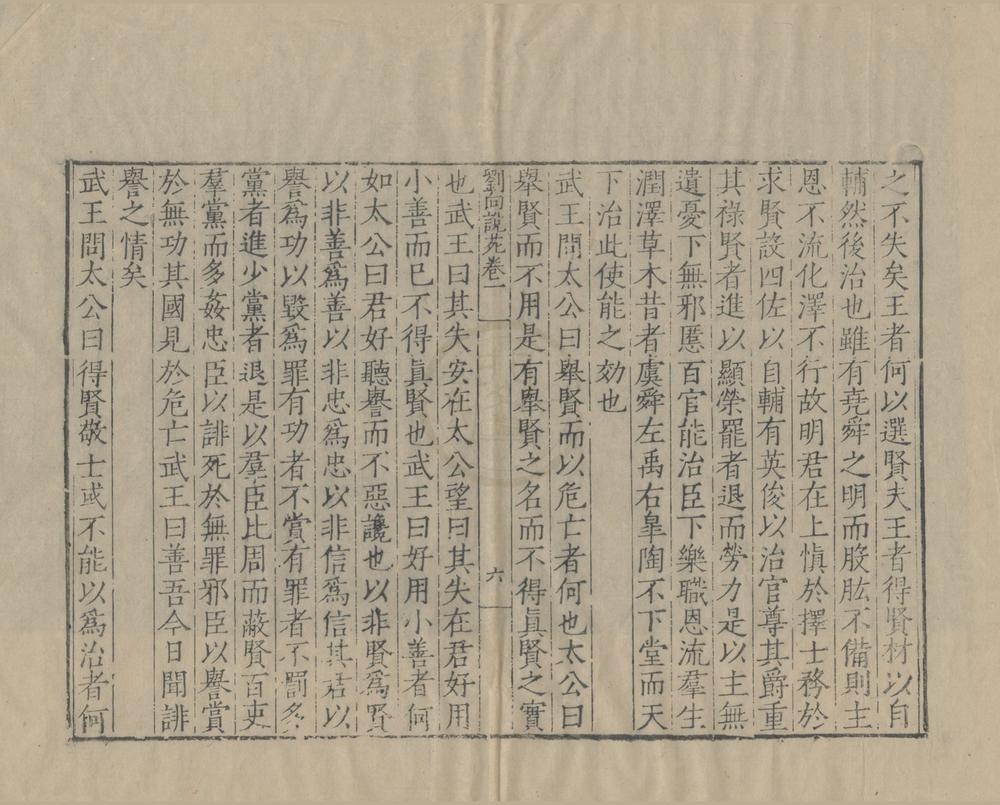 之不失矣王者何以選賢夫王者得賢材以自
輔然後治也雖有堯舜之明而股肱不備則主
恩不流化澤不行故明君在上慎於擇士務於
求賢設四佐以自輔有英俊以治官尊其爵重
其祿賢者進以顯榮罷者退而勞力是以主無
遺憂下無邪慝百官能治臣下樂職恩流羣生
潤澤草木昔者虞舜左禹右皐陶不下堂而天
下治此使能之効也
武王問太公曰舉賢而以危亡者何也太公曰
舉賢而不用是有舉賢之名而不得眞賢之實
劉向說苑卷一 六
也武王曰其失安在太公望曰其失在君好用
小善而已不得眞賢也武王曰好用小善者何
如太公曰君好聽譽而不惡讒也以非賢爲賢
以非善爲善以非忠爲忠以非信爲信其君以
譽爲功以毀爲罪有功者不賞有罪者不罰多
黨者進少黨者退是以羣臣比周而蔽賢百吏
羣黨而多姦忠臣以誹死於無罪邪臣以譽賞
於無功其國見於危亡武王曰善吾今日聞誹
譽之情矣
武王問太公曰得賢敬士或不能以爲治者何